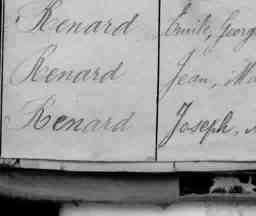 Renard Emile, Georg
Renard Jean, Ma
Renard Joseph,